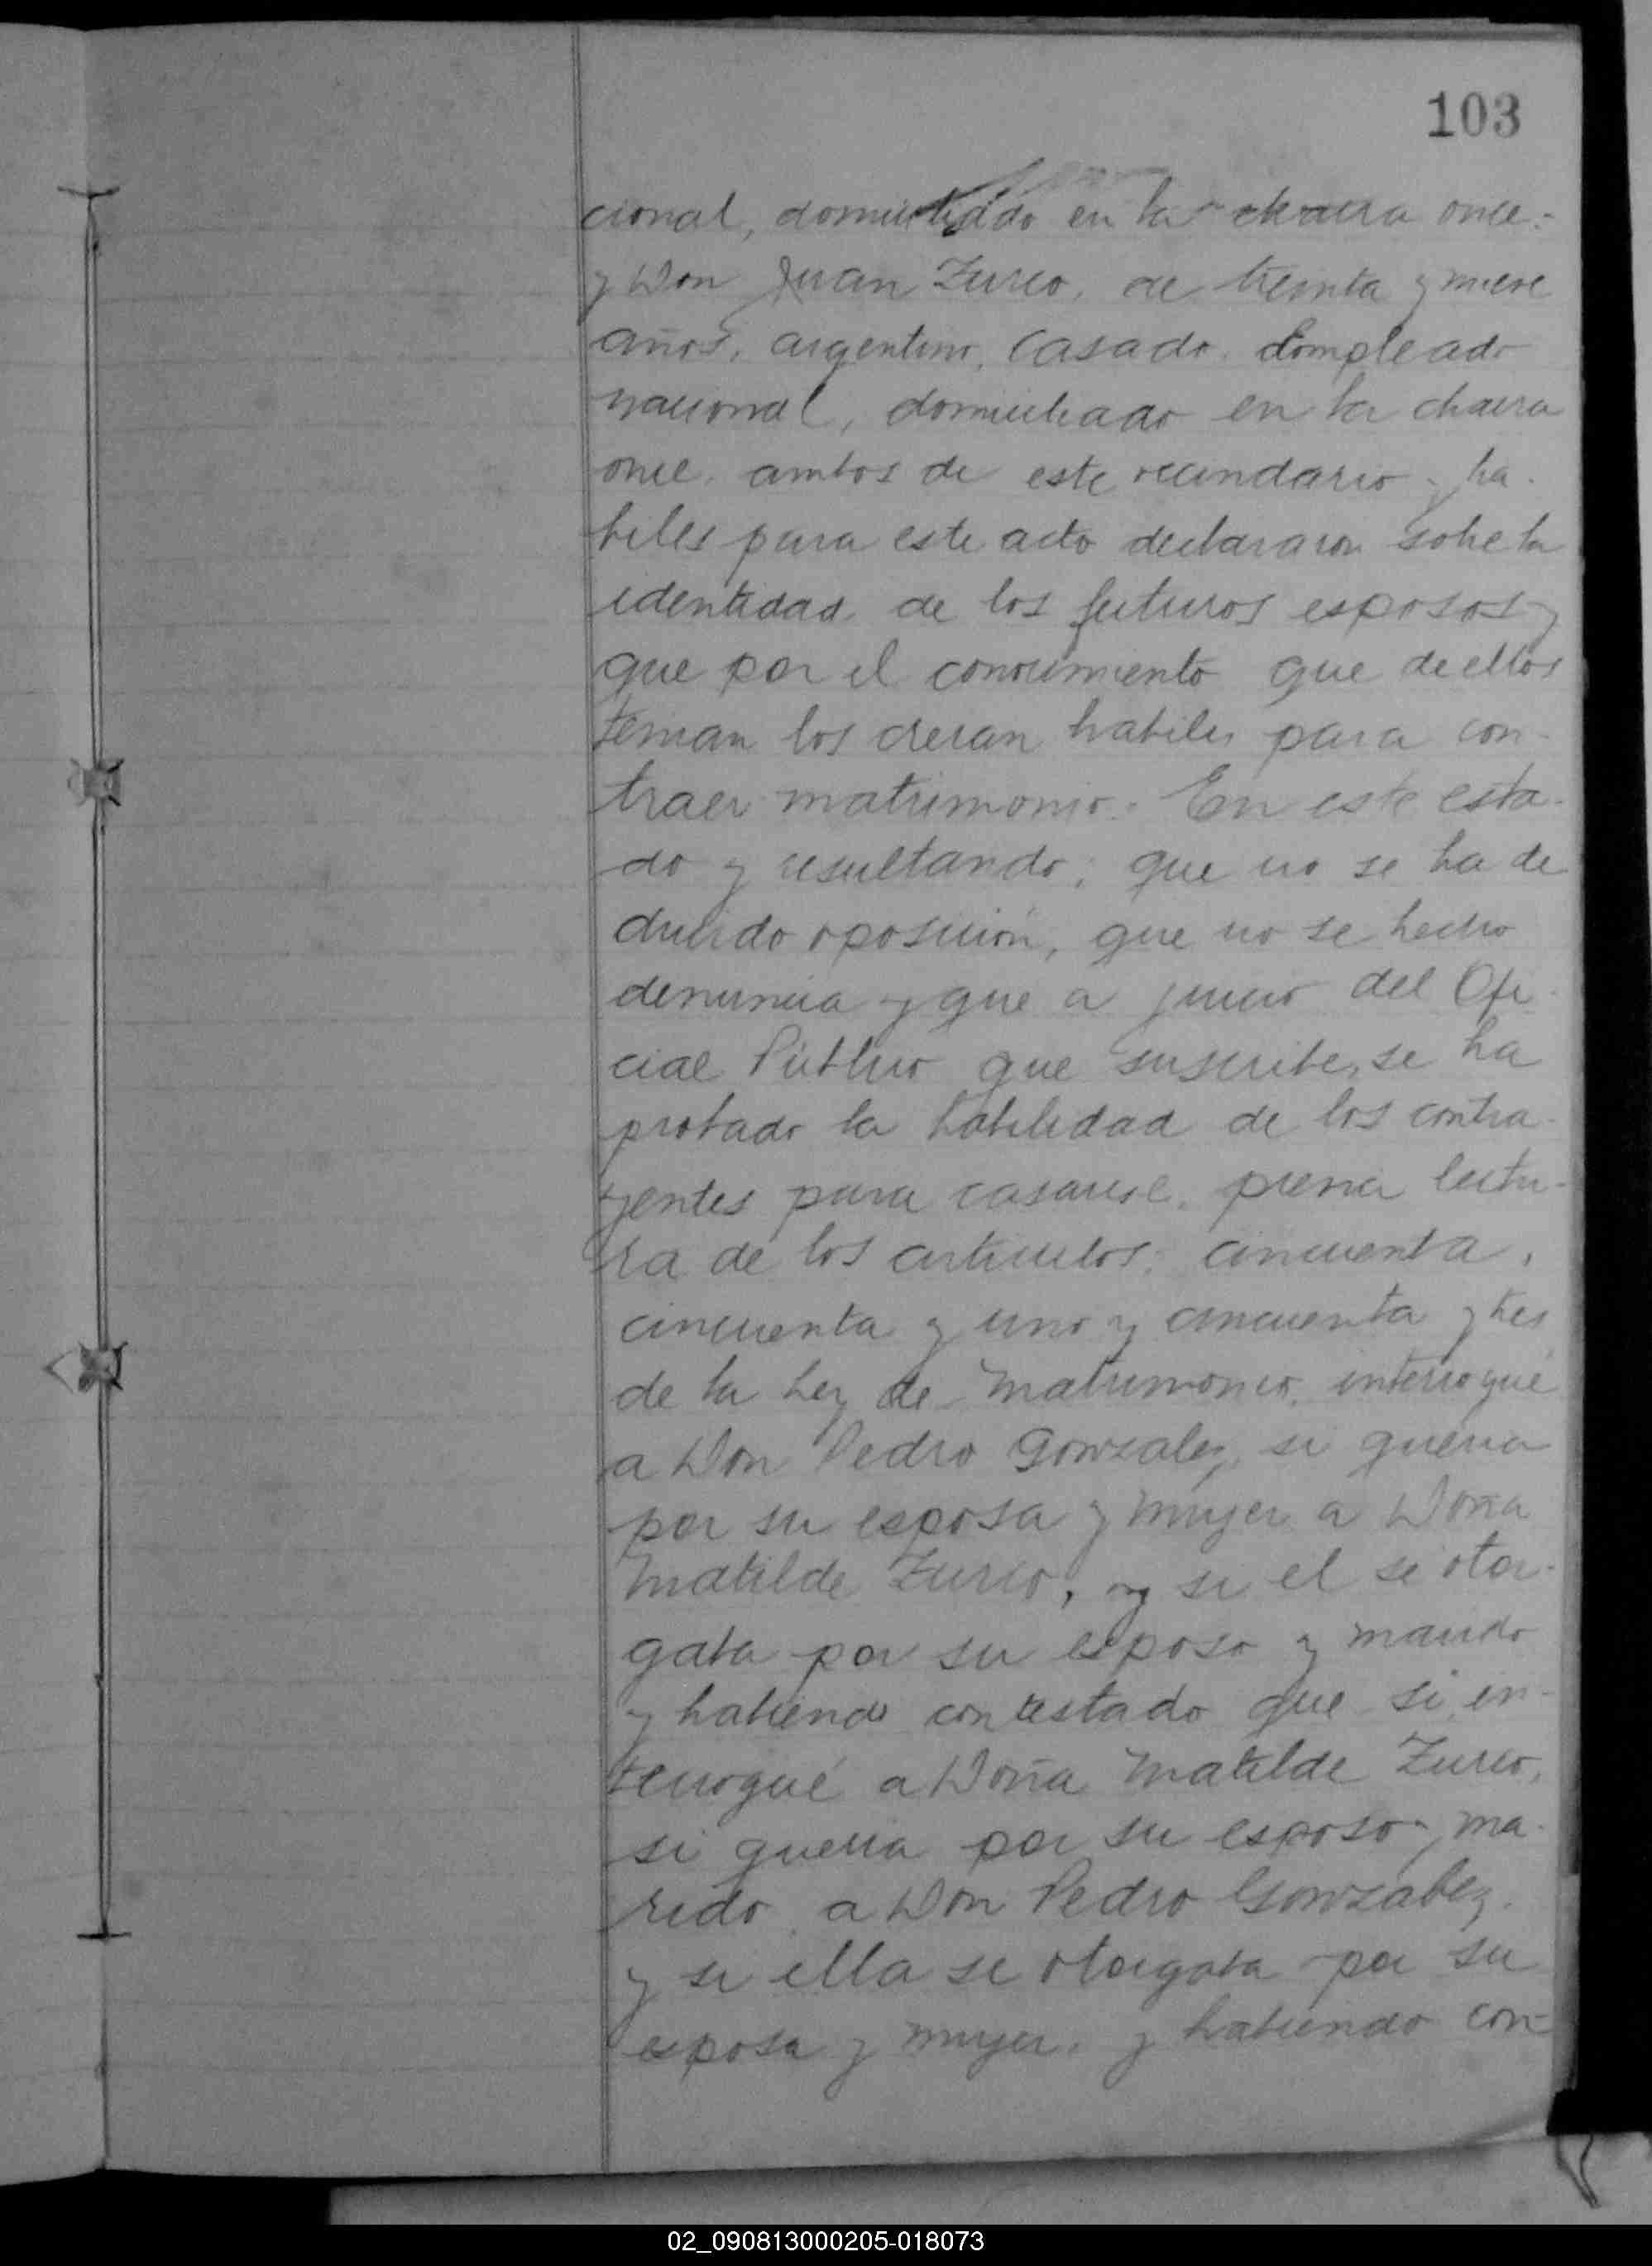 103
cional, domiciliado en la chacra once.-
y Don Juan Zurco, de treinta y nueve
años, argentino, casado, Empleado
nacional, domiciliado en la chacra
once, ambos de este vecindario y ha-
biles para este acto declararon sobre la
identidad de los futuros esposos y
que por el conocimiento que de ellos
tenian los creian habiles para con-
traer matrimonio. En este esta-
do y resultando; que no se ha de
ducido oposición, que no se hecho
denuncia y que a juicio del Ofi-
cial Público que suscribe, se ha
probado la habilidad de los contra-
yentes para casarse, previa lectu-
ra de los articulos; cincuenta,
cincuenta y uno y cincuenta y tres
de la Ley de Matrimonio, interrogué
a Don Pedro Gonzalez, si queria
por su esposa y mujer a Doña
Matilde Zurco, y si el se otor-
gaba por su esposo y marido
y habiendo contestado que si, in-
terrogué a Doña Matilde Zurco,
si queria por su esposo y ma-
rido a Don Pedro Gonzalez,
y si ella se otorgaba por su
esposa y mujer, y habiendo con-
02_090813000205-018073